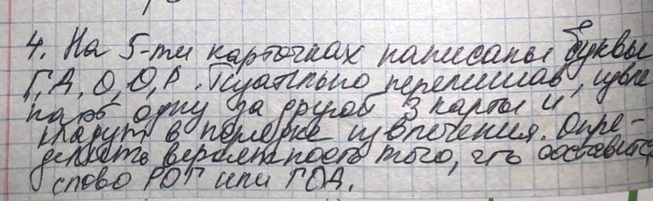 4. На 5-ти карточках написаны буквы
Г, Д, О, О, Р. Тщательно перемешав, извле
кают одну за другой 3 карты и
кладут в порядке извлечения. Опре-
делить вероятность того, что составится
слово РОГ или ГОД.